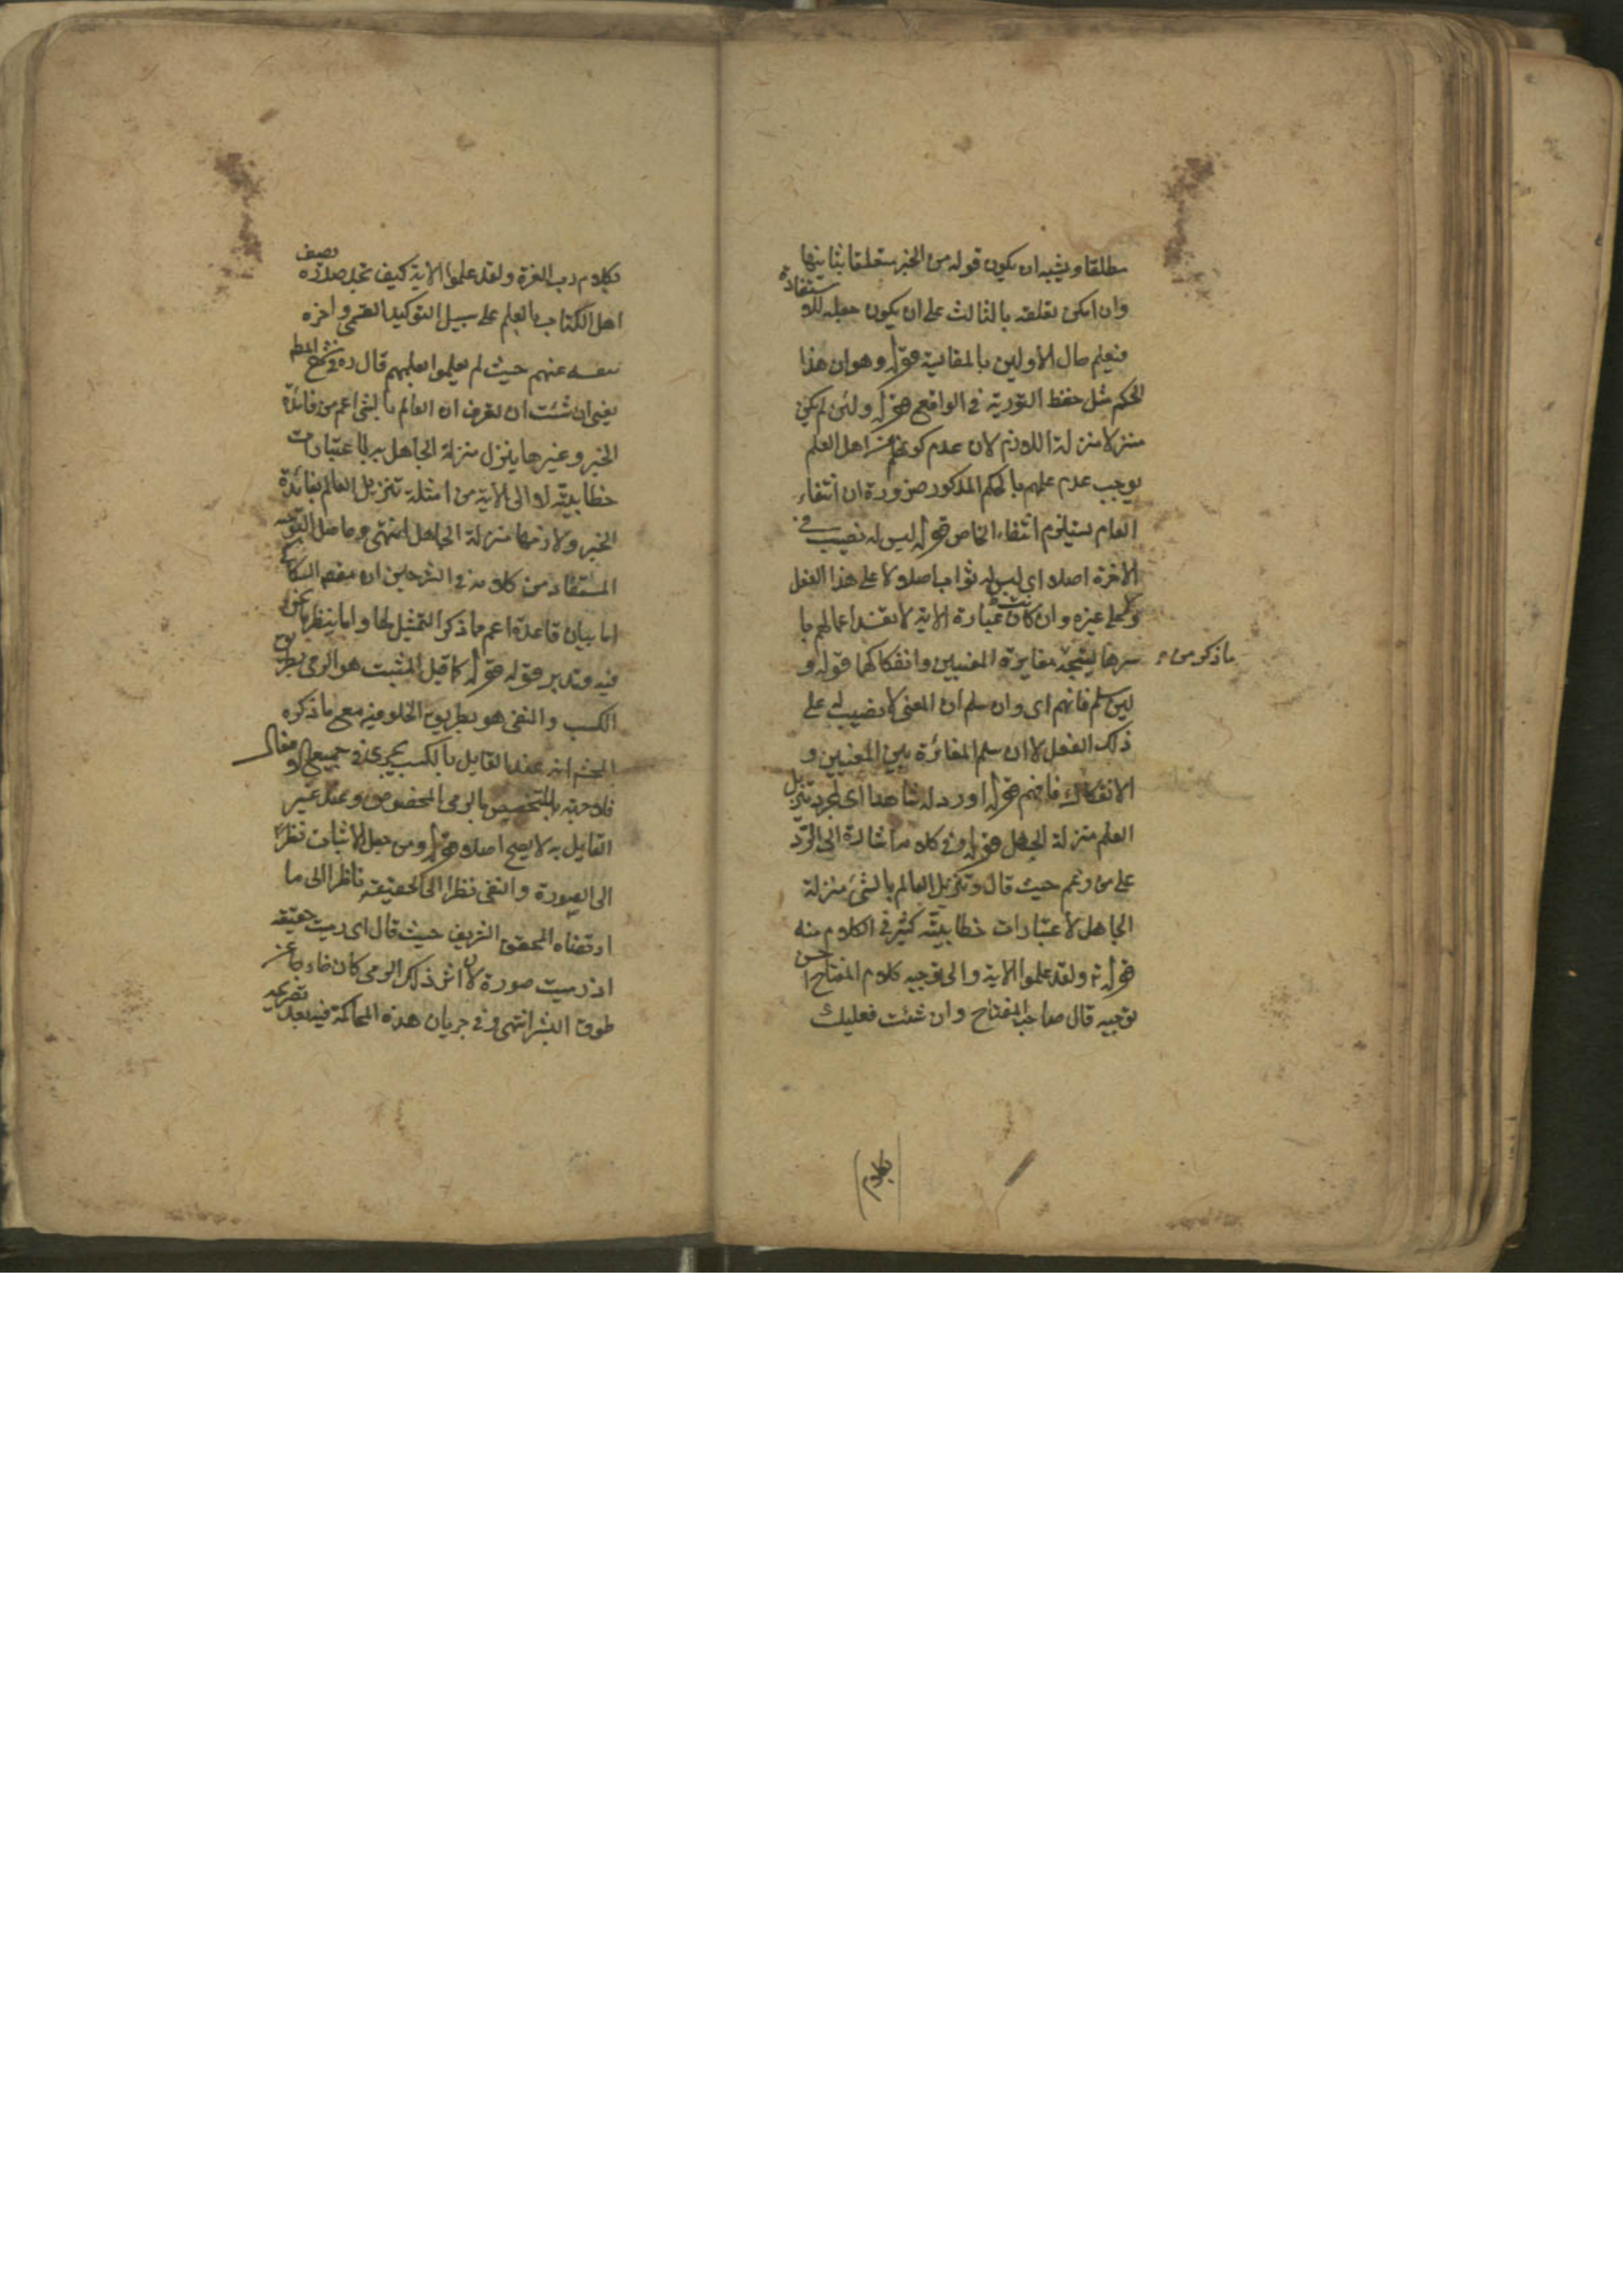 مطلقا ويشبه ان يكون قوله من الخبر متعلقا بثانيها
وان امكن تعلقه بالثالث على ان يكون جعله للاستفادة
فيعلم حال الاولين بالمقايسة قوله وهو ان هذا
الحكم مثل حفظ التورية في الواقع قوله ولئن لم يكن
منزلا منزلة اللازم لان عدم كونهم من اهل العلم
يوجب عدم علمهم بالحكم المذكور ضرورة ان انتفاء
العام يستلزم انتفاء الخاص قوله ليس له نصيب في
الآخرة اصلا اى ليس له ثواب اصلا لا على هذا الفعل
ولا على غيره وان كان عبارة الاية لا تفيد اعمالهم با
سرها ليتجه مغايرة المعنيين وانفكاكهما قوله و
ما ذكر من
لئن سلم فانهم اى وان سلم ان المعنى لا نصيب له على
ذلك الفعل لا ان سلم المغائرة بين المعنيين و
الانفكاك فافهم قوله اورد له شاهدا اى لمجرد تنزيل
العلم منزلة الجهل قوله وفي كلامه اشارة الى الرد
على من زعم حيث قال وتنزيل العالم بالشئ منزلة
الجاهل لاعتبارات خطابيته كثير في الكلام منه
قوله تع ولقد علموا الاية والى توجيه كلام المفتاح احسن
توجيه قال صاحب المفتاح وان شئت فعليك
بكلام
بكلام رب العزة ولقد علموا الاية كيف تجد صدره يصف
اهل الكتاب بالعلم على سبيل التوكيد القسمى واخره
ينفيه عنهم حيث لم يعلموا بعلمهم قال ره في شرح المط
يعنى ان شئت ان تعرف ان العالم بالشئ اعم من فائدة
الخبر وغيرها ينزل منزلة الجاهل به لاعتبارات
خطابيته لا الى الاية من امثلة تنزيل العالم بفائدة
الخبر ولازمها منزلة الجاهل انتهى وحاصل التوجيه
المستفاد من كلامه في الشرحين ان مقصد السكاكى
اما بيان قاعدة اعم مما ذكر التمثيل لها واما ينظر ما نحن
فيه وتدبر قوله قوله كما قيل المثبت هو الرمى بطريق
الكسب والنفى هو بطريق الخلق وفيه مع ما ذكره
المحشى انه عند القايل بالكسب يجرى في جميع الافعال
فلا جهة للتخصيص بالرمى المخصوص وعند غير
القايل به لا يصح اصلا قوله ومن جعل الاثبات نظرا
الى الصورة والنفى نظرا الى الحقيقة ناظرا الى ما
ارتضاه المحقق الشريف حيث قال اى رميت حقيقة
اذ رميت صورة لان اثر ذلك الرمى كان خارجا عن
طوق البشر انتهى وفي جريان هذه المحاكمة فيه بعد تصريحه